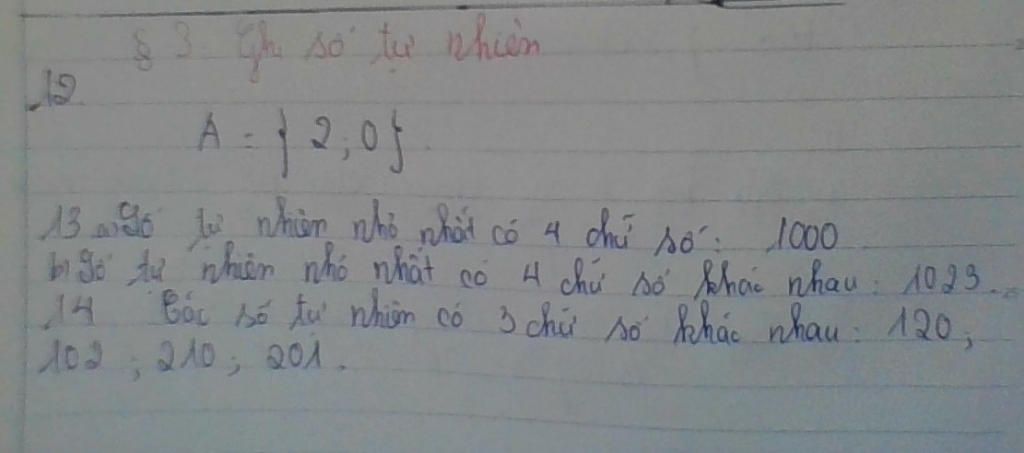 § 3 Ghi số tự nhiên
12.
A = { 2; 0}
13 a) Số tự nhiên nhỏ nhất có 4 chữ số: 1000
b) Số tự nhiên nhỏ nhất có 4 chữ số khác nhau: 1023.
14 Các số tự nhiên có 3 chữ số khác nhau: 120;
102; 210; 201.